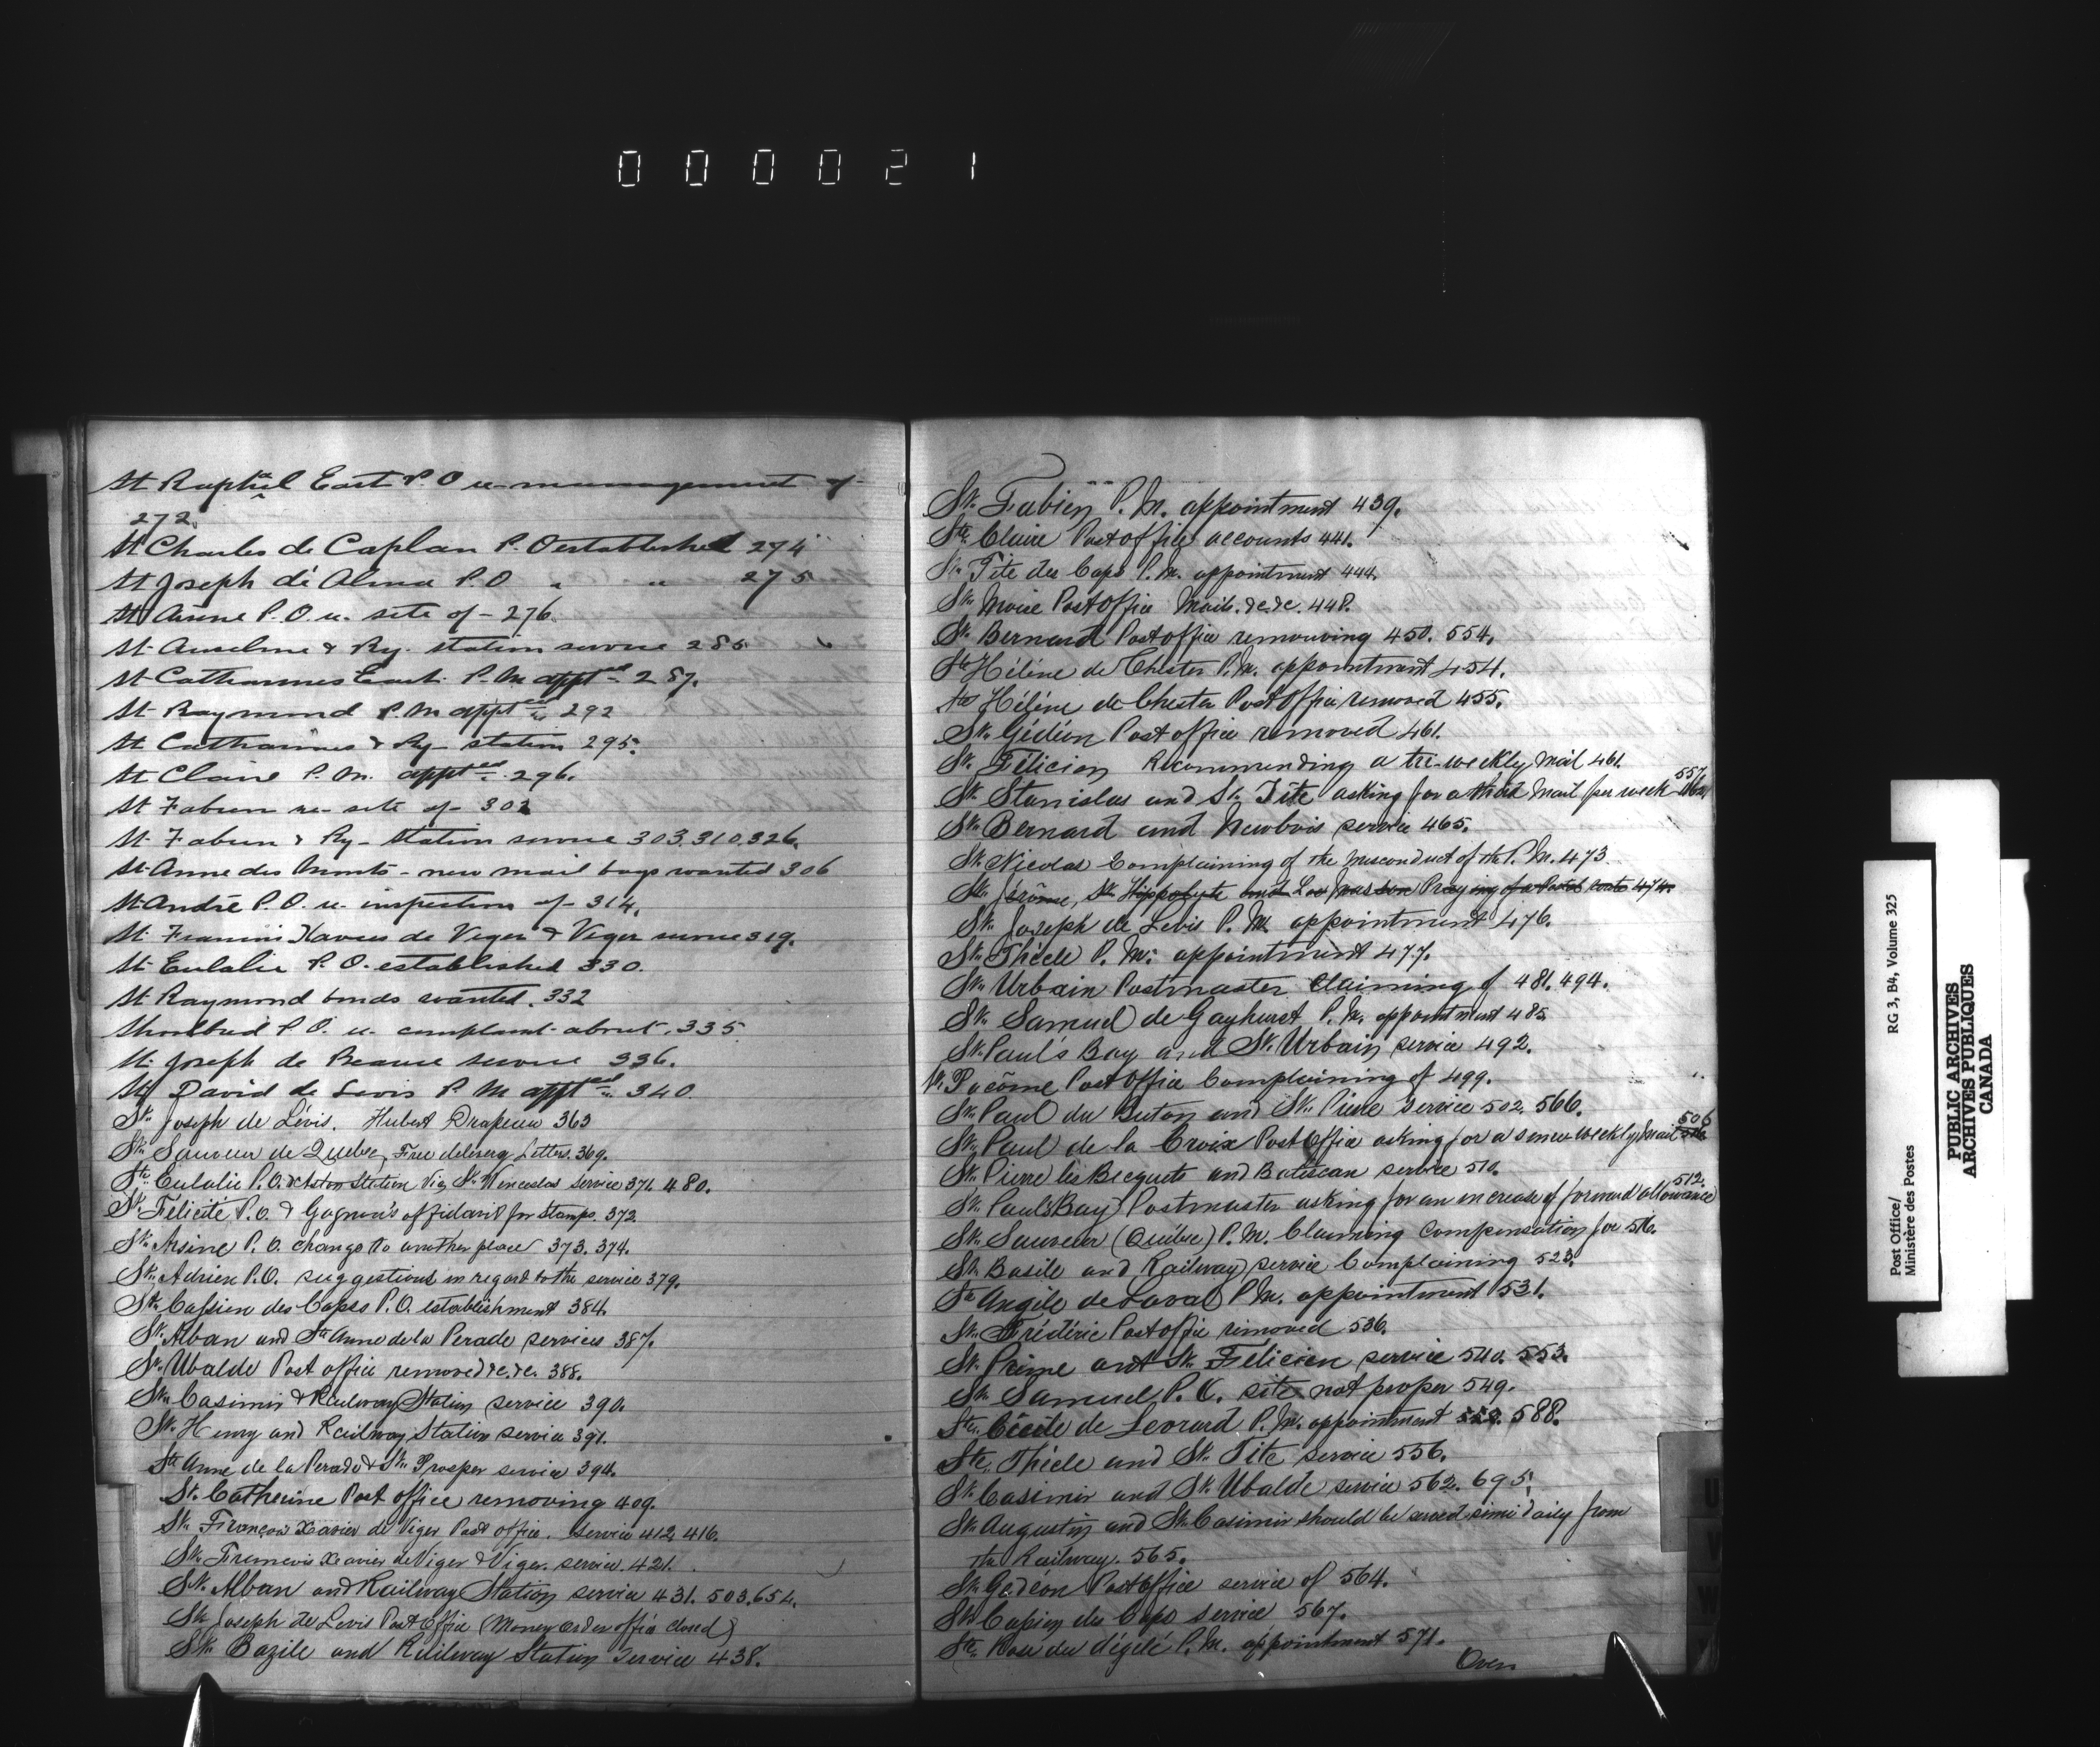 000021
St Raphael East P.O re management of
272.
St Charles de Caplan P.O established 274
St Joseph de Alma P.O " " 275
St Anne P.O. re. site of - 276
St Anselme & Ry. station service 285
St Catharines East P.M appted 287.
St Raymond P.M appted 292
St Catharines & Ry station 295.
St Claire P.M. apptd 296.
St Fabien re- site of - 302
St Fabien & Ry- Station service 303.310.326.
St Anne des Monts - new mail bags wanted 306
St André P.O. re. inspection of - 314.
St Francois Xavier de Viger & Viger service 319.
St Eulalie P.O. established 330.
St Raymond bonds wanted. 332
P.O. re. complaint about. 335
St Joseph de Beauce service 336.
St David de Levis P.M apptd 340.
St. Joseph de Lévis. Hubert Drapeau 363
St. Sauveur de Quebec, Free delivery Letters. 369.
Ste Eulalie P.O. & Aston Station Via St. Wenceslas Service 371. 480.
St. Félicité P.O. & Gagnon's affidavit for Stamps. 372
St. Arsène P.O. change to another place 373. 374.
St. Adrien P.O. suggestions in regard to the service 379.
St. Cassien des Capss P.O. establishment 384.
St. Alban and Ste Anne de la Perade services 387.
St. Ubalde Post office removed &c. &c. 388.
St. Casimir & Railway Station service 390.
St. Henry and Railway Station service 391.
Ste Anne de la Perade & St. Prosper service 394.
St. Catherine Post office removing 409.
St. François Xavier de Viger Post office. Service 412. 416.
St. Francois Xeavier de Viger & Viger. service. 421.
St. Alban and Railway Station service 431. 503. 654.
St. Joseph de Levis Post Office (Money order office closed)
St. Bazile and Railway Station Service 438.
St. Fabien P.M. appointment 439.
Ste Claire Post office accounts 441.
St. Tite des Caps P.M. appointment 444.
Post Office Mails. &c. &c. 448.
St. Bernard Post office remouving 450. 554.
Ste Hélène de Chester P.M. appointment 454.
Ste Hélène de Chester Post Office removed 455.
St. Gédéon Post office removed 461.
St. Félicien Recommending a tri-weekly mail 461.
St. Stanislas and St. Tite asking for a third Mail per week 557. 462.
St. Bernard and Newbois service 465.
St. Nicolas Complaining of the Misconduct of the P.M. 473
St. Jérôme, St. Hippolyte and Lac Masson Praying for Postal route 474.
St. Joseph de Levis P.M. appointment 476.
St. Thècle P.M. appointment 477.
St. Urbain Postmaster Claiming of 481. 494.
St. Samuel de Gayhurst P.M. appointment 485.
St. Paul's Bay and St. Urbain service 492.
St. Pacôme Post Office Complaining of 499.
St. Paul du Buton and St. Pierre service 502. 566.
St. Paul de la Croix Post Office asking for a semi-weekly Mail 506
St. Pierre les Becquets and Batiscan service 510.
St. Paul's Bay Postmaster asking for an increase of forward allowance 512.
St. Sauveur (Québec) P.M. Claiming Compensation for 516.
St. Basile and Railway service Complaining 523.
Ste Angèle de Laval P.M. appointment 531.
St. Frédéric Post office removed 536.
St. Prime and St. Félicien service 540. 553.
St. Samuel P.O. site not proper 549.
Ste. Cécile de Levrard P.M. appointment 552. 588.
Ste. Thècle and St. Tite service 556.
St. Casimir and St. Ubalde service 562. 695.
St. Augustin and St. Casimir should be served semi daily from
the Railway. 565.
St. Gédéon Post Office service of 564.
St. Cassien des Caps service 567.
Ste. Rose du dégelé P.M. appointment 571.
Over
U
V
W
Post Office/ RG 3, B4, Volume 325
Ministère des Postes
PUBLIC ARCHIVES
ARCHIVES PUBLIQUES
CANADA